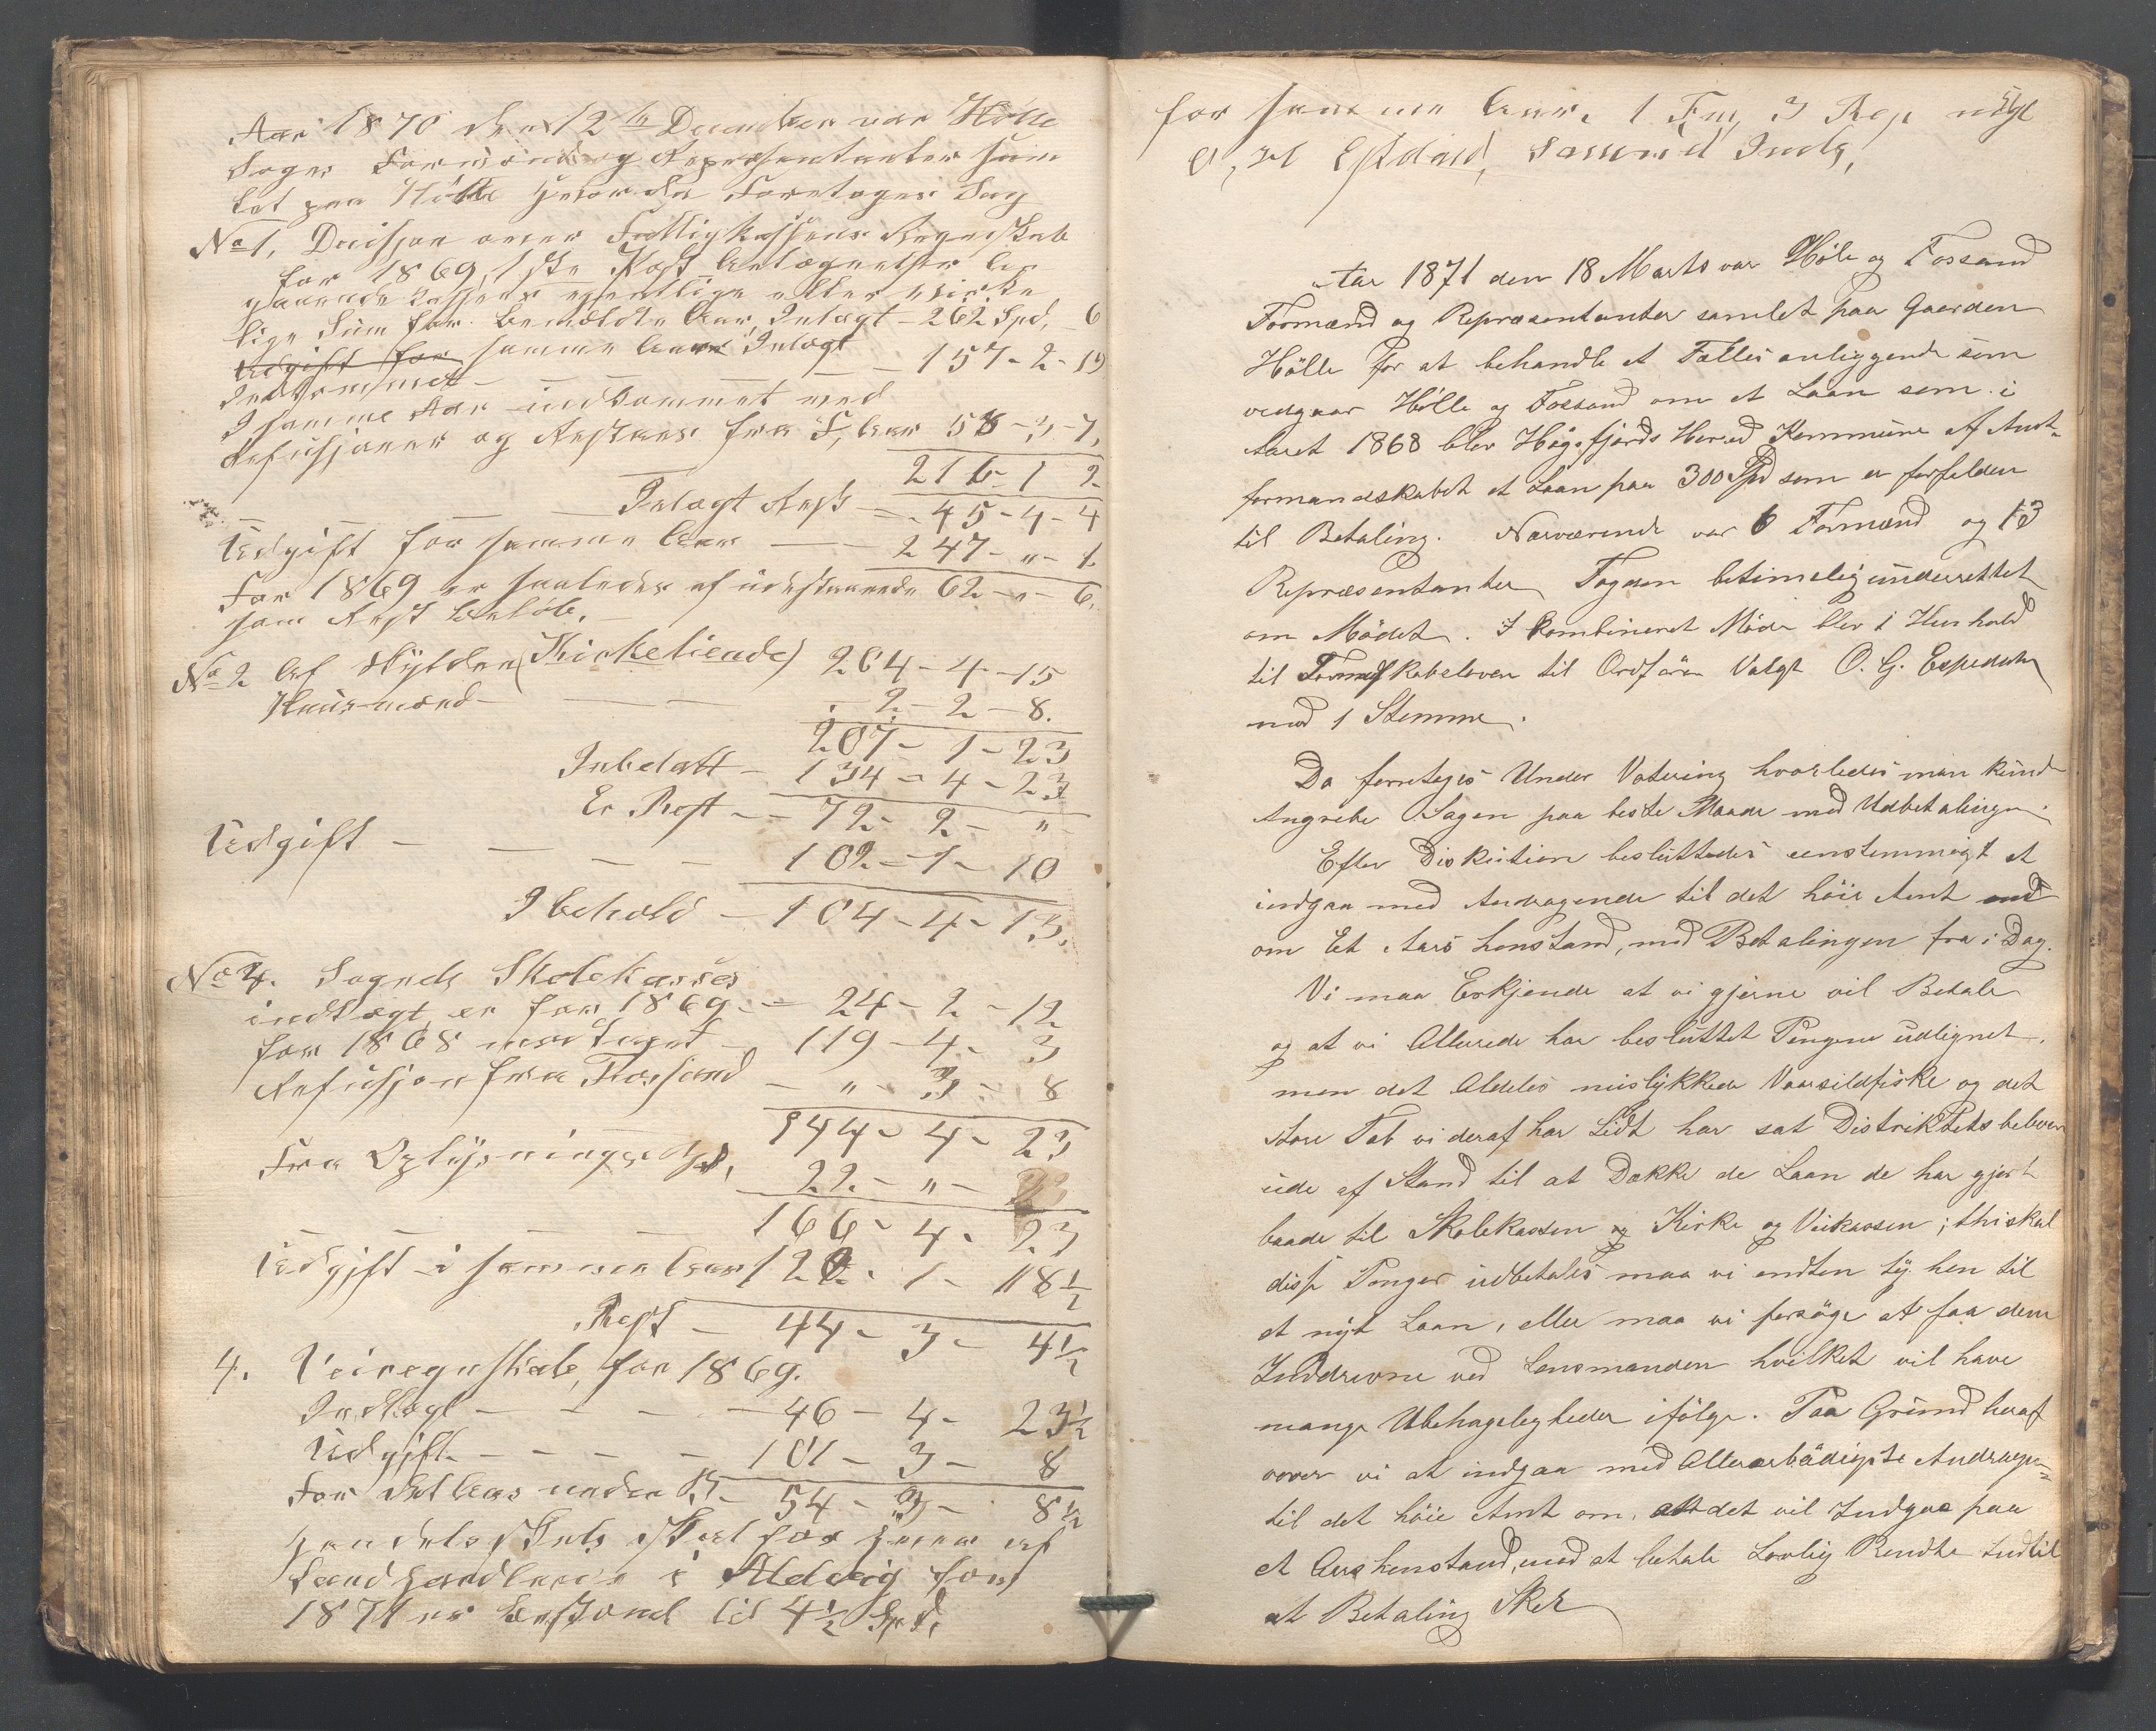 Aar 1870 den 12te December var Hølle
Sogns Formænd og Repræsentanter sam
let paa Hölle hvor da Foretoges Sag
No 1, Decisjon over Fattigkassens Regnskab
for 1869, 1ste Post Antegnelser An
gaaende Kassens egentlige eller virke
lige Sum for bemældte Aar, Inlægt - 262 Spd, 6
Udgift for samme Aar Inlægt
Indkommet - - - - - 157 - 2 - 19
I samme Aar indkommet ved
Refusjoner og Restans fra F, Aar 58 - 3 - 7,
216 1 2
Inlægt Rest - 45 - 4 - 4
Udgift for samme Aar - 247 - " - 1.
For 1869 er saaledes af udestaaende 62 - " - 6,
som Rest Beløb.
No 2 Af Skylden (Kirketiende) 204 - 4 - 15
Huusmænd - - - 2 - 2 - 8.
207 - 1 - 23
Inbetalt - 134 - 4 - 23
Er Rest - 72 - 2 - "
Udgift - - - - 102 - 1 - 10
I behold - 104 - 4 - 13.
No 4. Sognets Skolekasses
indtægt er for 1869 - 24 - 2 - 12
for 1868 - 119 - 4 - 3
Refusjon fra Fossand - " - 3 - 8
144 - 4 - 23
Fra Oplysningsv.
22 - " -
166 - 4 - 23
Udgift i samme Aar 122 - 1 - 18½
Rest - 44 - 3 - 4½
4. Veiregnskab, for 1869.
Indtægt - - - - 46 - 4 - 23½
Udgift - - - - 101 - 3 - 8
For det Aar under B. - 54 - 3 - 8½
Handels skat for
Landhandlerie i Aldvig for
1871 er bestemt til 4½ Spd,
for samme Aar. 1 Fm, 3 Rep valgt
Fossand
Aar 1871 den 18 Marts var Höle og Fossand
Formænd og Repræsentanter samlet paa Gaarden
Hölle for at behandle et Fælles anliggende som
vedgaar Hölle og Fossand om et Laan som i
Aaret 1868 blev Högsfjords Hered Kommune af Amt-
formandskabet et Laan paa 300 Spd som er forfalden
til Betaling. Nærværende var 6 Formænd og 13
Repræsentanter Fogden betimelig underrettet
om Mödet. I kombineret Möde blev i Henhold
til Formskabsloven til Ordförer Valgt O. G. Espedal
mod 1 Stemme.
Da forretoges Under Votering hvorledes man kunde
Angribe Sagen paa beste Maade med Udbetalingen.
Efter Diskution besluttedes eenstemmigt at
indgaa med Andragende til det höie Amt
om Et Aars henstand, med Betalingen fra i Dag.
Vi maa Erkjende at vi gjerne vil Betale
og at vi Allerede har besluttet Pengene udlignet.
men det Aldeles mislykkede Vaarsildfiske og det
store Tab vi deraf har Lidt har sat Distriktets beboer
ude af Stand til at Dække de Laan de har gjort
baade til Skolekassen og Kirke og Veikassen; thi skal
disse Penger udbetales maa vi endten ty hen til
et nyt Laan, eller maa vi forsöge at faa dem
Inddrevne ved Lensmanden hvilket vil have
mange Ubehageligheder ifölge. Paa Grund heraf
vover vi at indgaa med Allerærbödigste Andragen-
til det höie Amt om, at det vil Indgaa paa
et Aars henstand, mod at betale Lovlig Rendte Indtil
at Betaling Sker